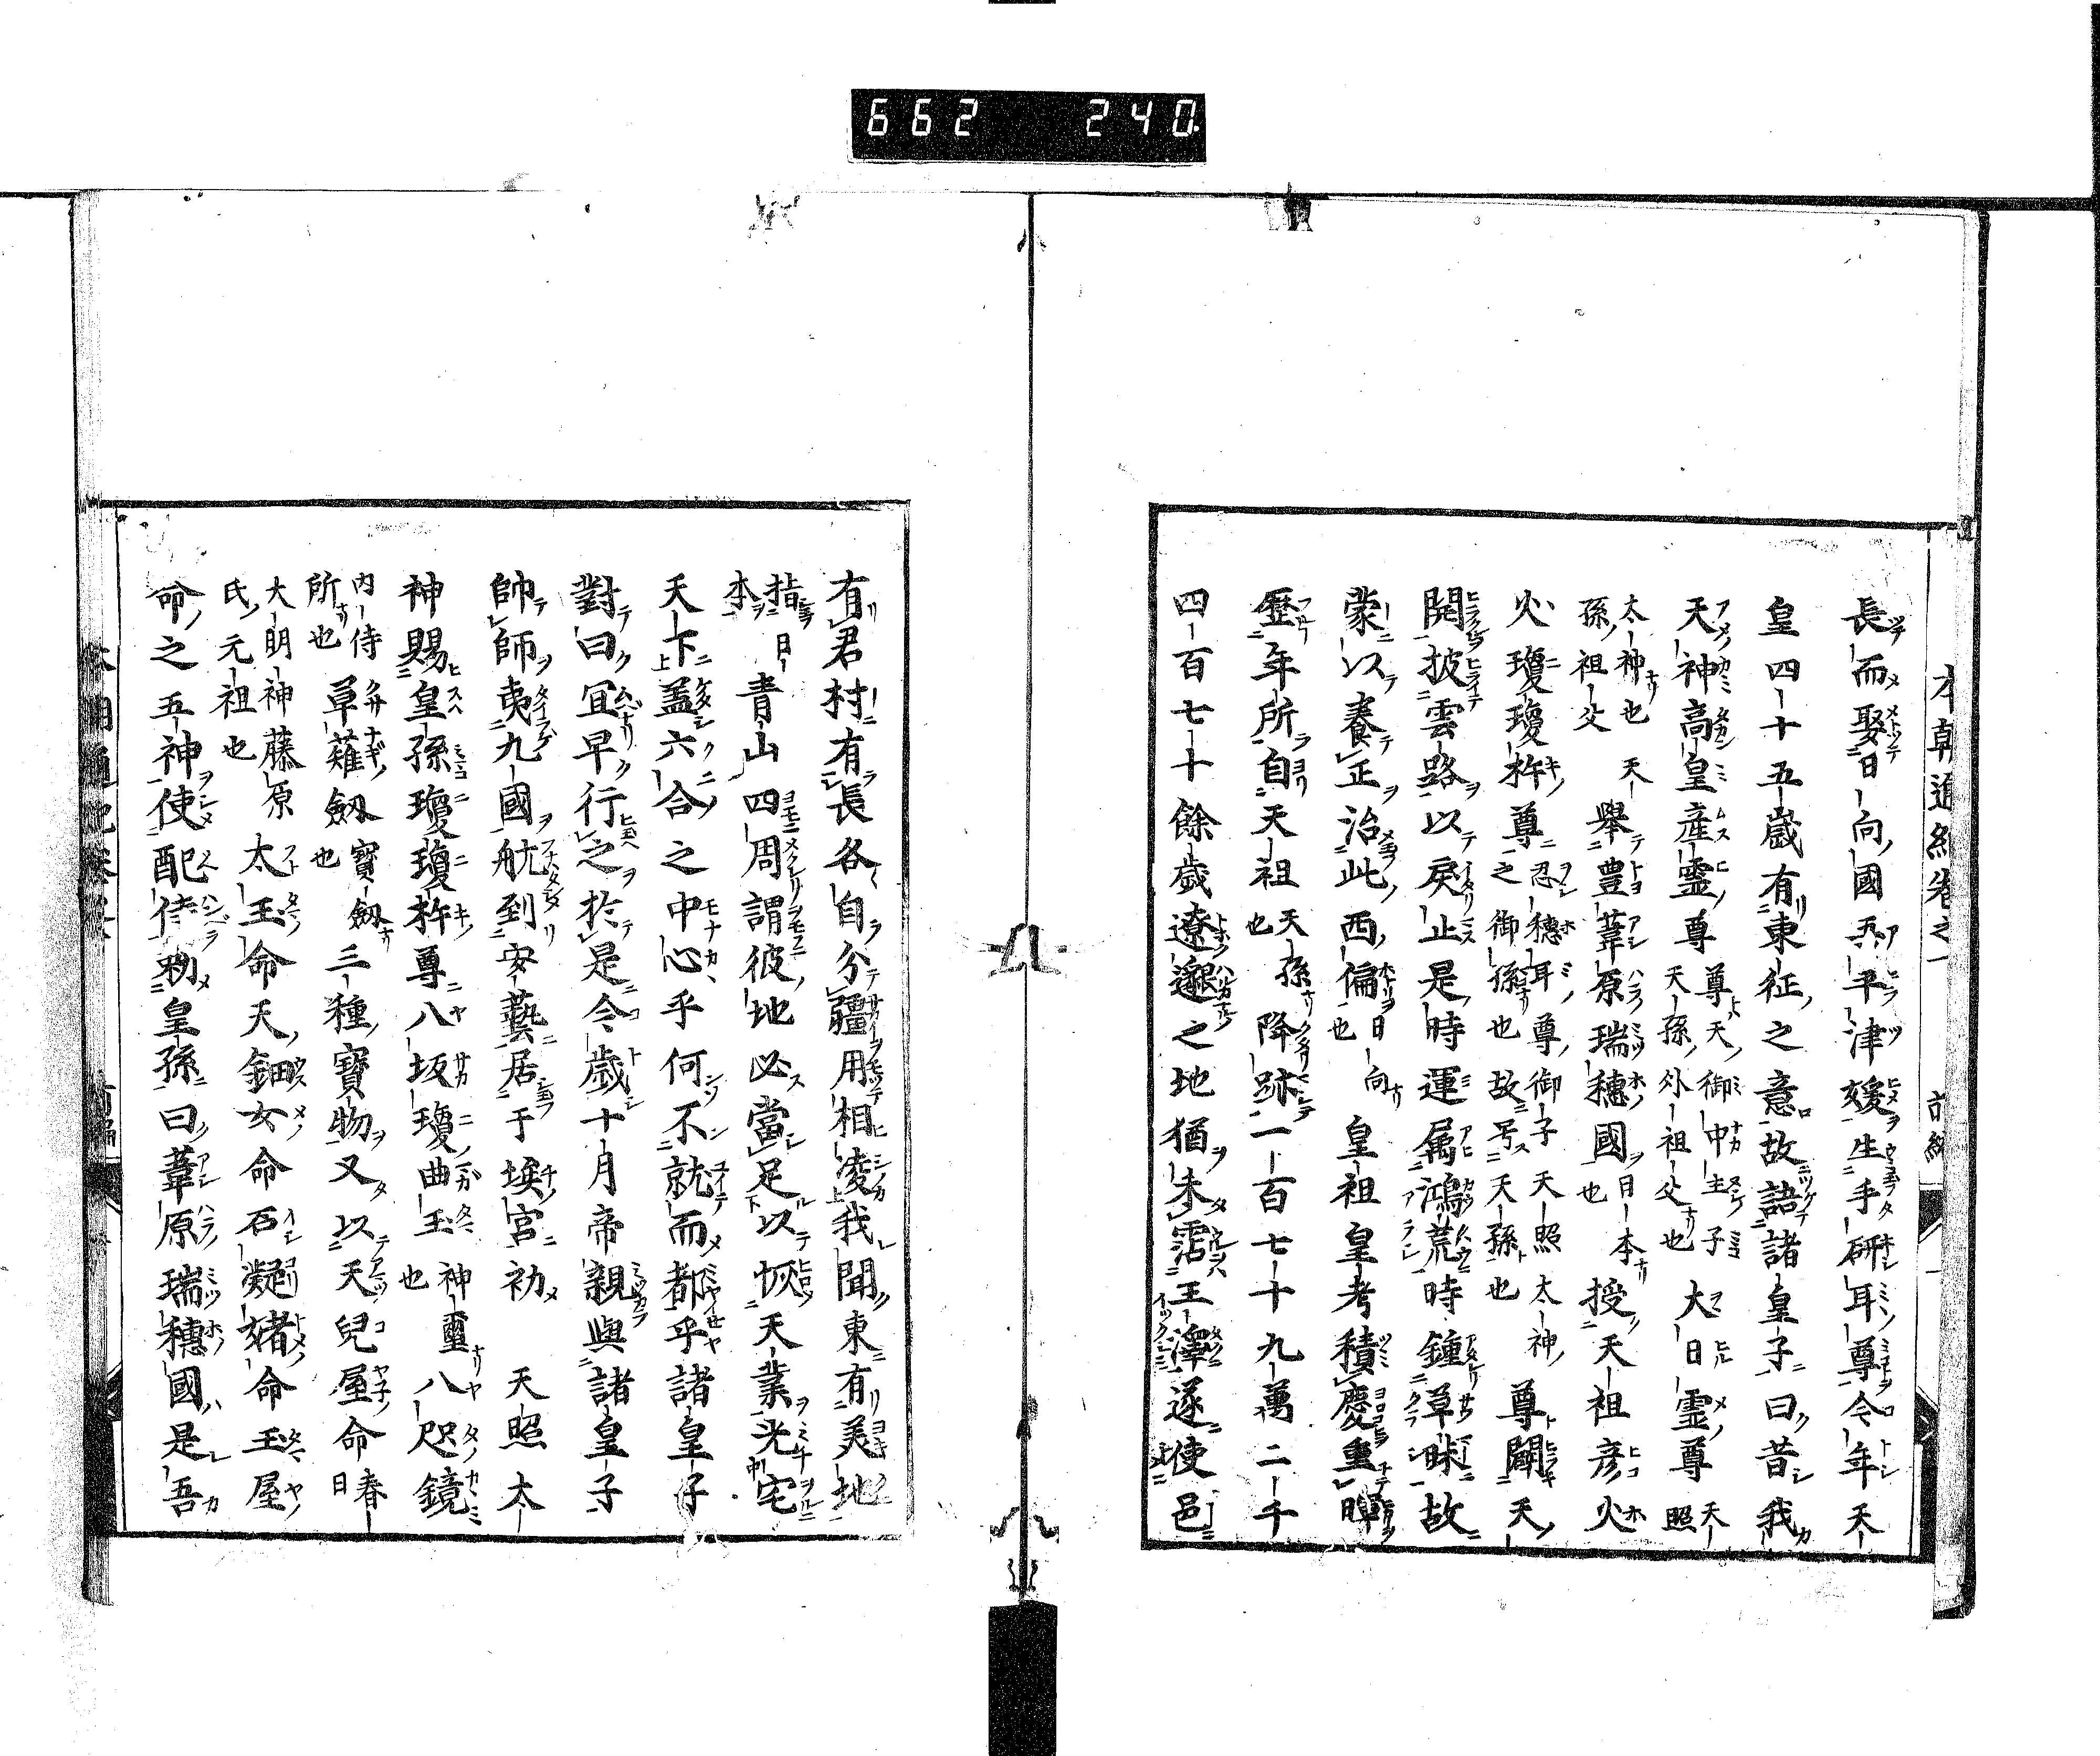 662 240
本朝通紀卷之一 前編 一
長而娶日向國吾平津媛生手研耳尊今年天
皇四十五歲有東征之意故語諸皇子曰昔我
天神高皇産靈尊 尊天御中主子天孫外祖父也 大日靈尊 天照
太神也天孫祖父 舉豊葦原瑞穗國 日本也 授天祖彦火
火瓊瓊杵尊 忍穗耳尊御子天照太神之御孫也故号天孫也 尊闢天
開披雲路以戾止是時運属鴻荒時鍾草昧故
蒙以養正治此西偏 日向也 皇祖皇考積慶重暉
歷年所自天祖 天孫也 降跡一百七十九萬二千
四百七十餘歲遼邈之地猶未霑王澤遂使邑
有君村有長各自分疆用相凌我聞東有美地
指日本 青山四周謂彼地必當足以恢天業光宅
天下蓋六合之中心乎何不就而都乎諸皇子
對曰宜早行之於是今歲十月帝親與諸皇子
帥師夷九國航到安藝居于埃宮初 天照太
神賜皇孫瓊瓊杵尊八坂瓊曲玉 神璽也 八咫鏡
內侍所也 草薙劔 寶劔也 三種寶物又以天兒屋命 春日
大明神藤原氏元祖也 太玉命天鈿女命石凝姥命玉屋
命之五神使配侍勅皇孫曰葦原瑞穗國是吾